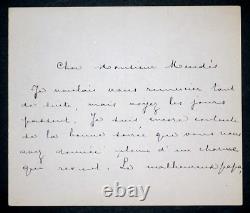 Cher Monsieur Mendès
Je voulais vous remercier tout
de suite, mais voyez les jours
passent. Je suis encore
de la bonne soirée que vous nous
avez donnée pleine d'un charme
qui La malheureux papa,
© picclick.com